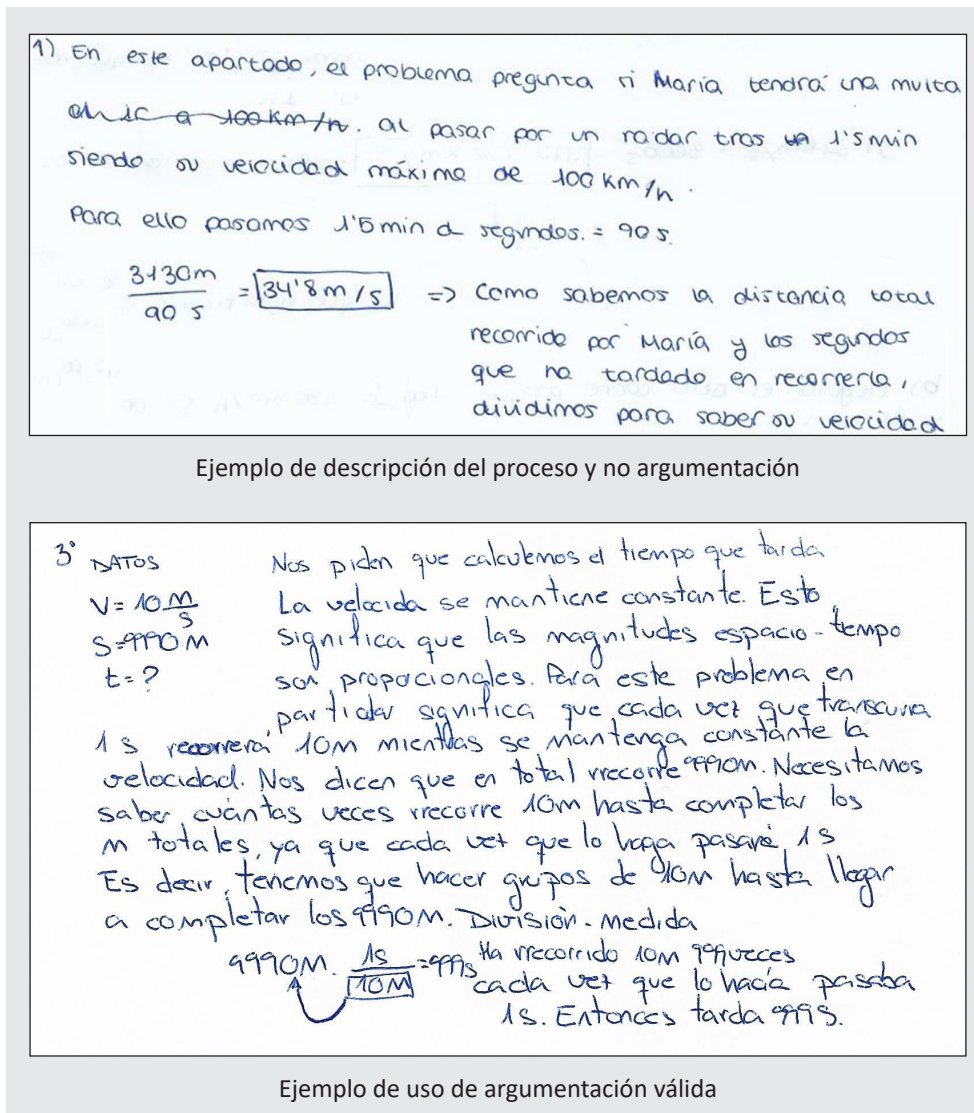 1) En este apartado, el problema pregunta si María tendrá una multa
a 100 km/h. al pasar por un radar tras un 1'5 min
siendo su velocidad máxima de 100 km/h.
Para ello pasamos 1'5 min a segundos. = 90 s.
3130m / 90 s = 34'8 m/s => Como sabemos la distancia total
recorrida por María y los segundos
que ha tardado en recorrerla,
dividimos para saber su velocidad
Ejemplo de descripción del proceso y no argumentación
3° DATOS Nos piden que calculemos el tiempo que tarda
V = 10 m/s La velocida se mantiene constante. Esto
S = 9990 m significa que las magnitudes espacio-tempo
t = ? son propocionales. Para este problema en
particular significa que cada vez que transcurra
1 s recorrerá 10m mientras se mantenga constante la
velocidad. Nos dicen que en total rrecorre 9990m. Necesitamos
saber cuántas veces rrecorre 10m hasta completar los
m totales, ya que cada vez que lo haga pasará 1 s
Es decir, tenemos que hacer grupos de 10m hasta llegar
a completar los 9990m. División-medida
9990m. 1s / 10m = 999s Ha rrecorrido 10m 999 veces
cada vez que lo hacía pasaba
1s. Entonces tarda 999s.
Ejemplo de uso de argumentación válida